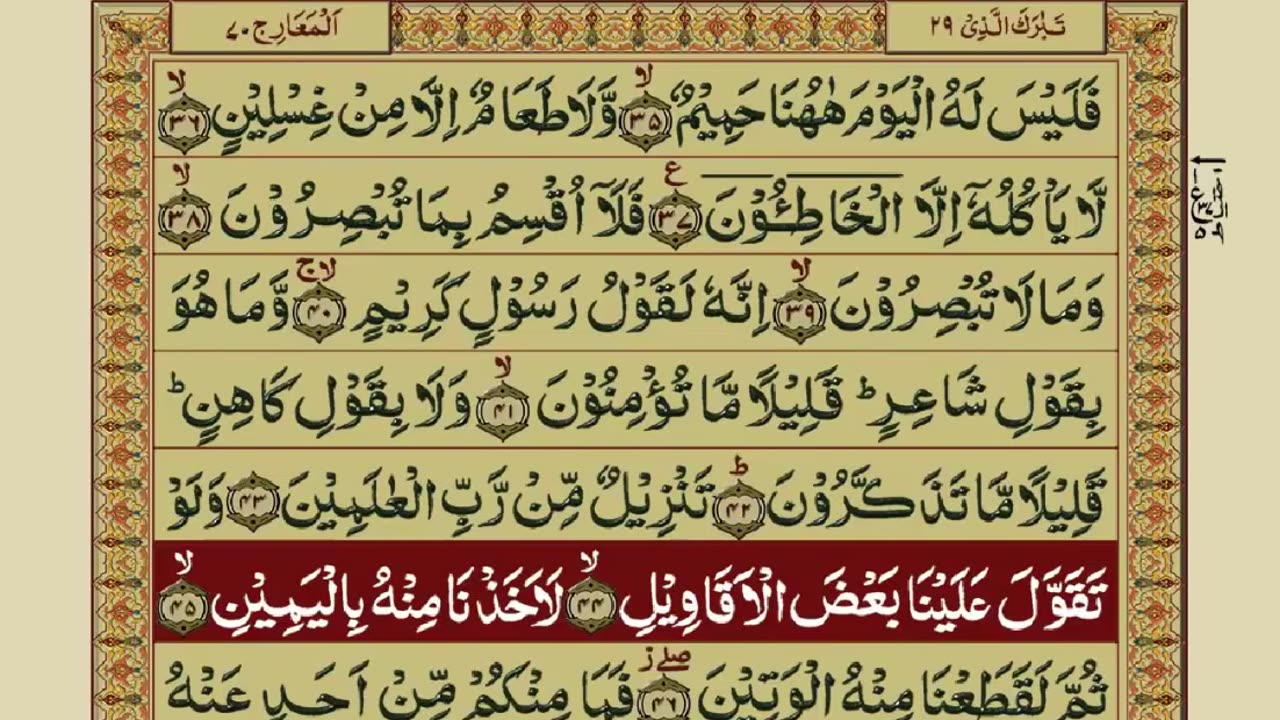 تَبٰرَكَ الَّذِیْ ٢٩
اَلْمَعَارِج ٧٠
فَلَیْسَ لَهُ الْیَوْمَ هٰهُنَا حَمِیْمٌ ۙ﴿۳۵﴾ وَّلَا طَعَامٌ اِلَّا مِنْ غِسْلِیْنٍ ۙ﴿۳۶﴾
لَّا یَاْكُلُهٗۤ اِلَّا الْخَاطِـُٔوْنَ ﴿۳۷﴾ ع فَلَاۤ اُقْسِمُ بِمَا تُبْصِرُوْنَ ۙ﴿۳۸﴾
وَمَا لَا تُبْصِرُوْنَ ۙ﴿۳۹﴾ اِنَّهٗ لَقَوْلُ رَسُوْلٍ كَرِیْمٍ ﴿۴۰﴾ لاج وَّمَا هُوَ
بِقَوْلِ شَاعِرٍ ؕ قَلِیْلًا مَّا تُؤْمِنُوْنَ ۙ﴿۴۱﴾ وَلَا بِقَوْلِ كَاهِنٍ ؕ
قَلِیْلًا مَّا تَذَكَّرُوْنَ ؕ﴿۴۲﴾ تَنْزِیْلٌ مِّنْ رَّبِّ الْعٰلَمِیْنَ ﴿۴۳﴾ وَلَوْ
تَقَوَّلَ عَلَیْنَا بَعْضَ الْاَقَاوِیْلِ ۙ﴿۴۴﴾ لَاَخَذْنَا مِنْهُ بِالْیَمِیْنِ ۙ﴿۴۵﴾
ثُمَّ لَقَطَعْنَا مِنْهُ الْوَتِیْنَ ﴿۴۶﴾ صلے ز فَمَا مِنْكُمْ مِّنْ اَحَدٍ عَنْهُ